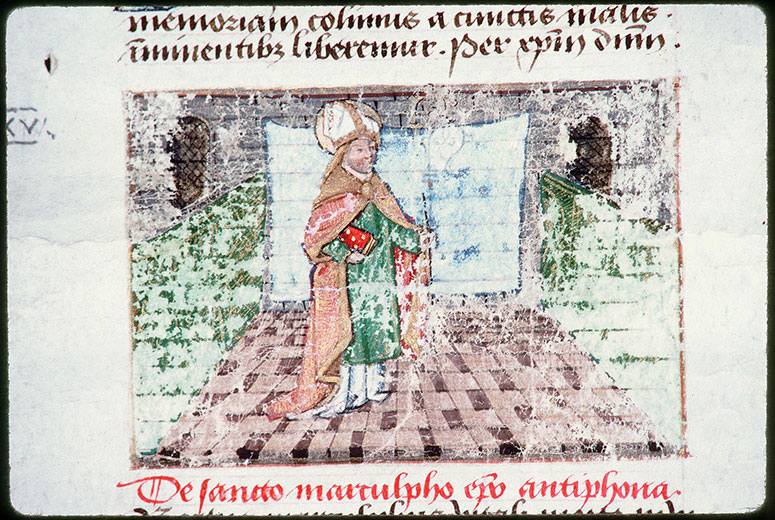 memoriam colimus a cunctis malis
imminentibꝫ liberemur. Per xp̄m dn̄m.
XV
De sancto marculpho ep̄o antiphona.